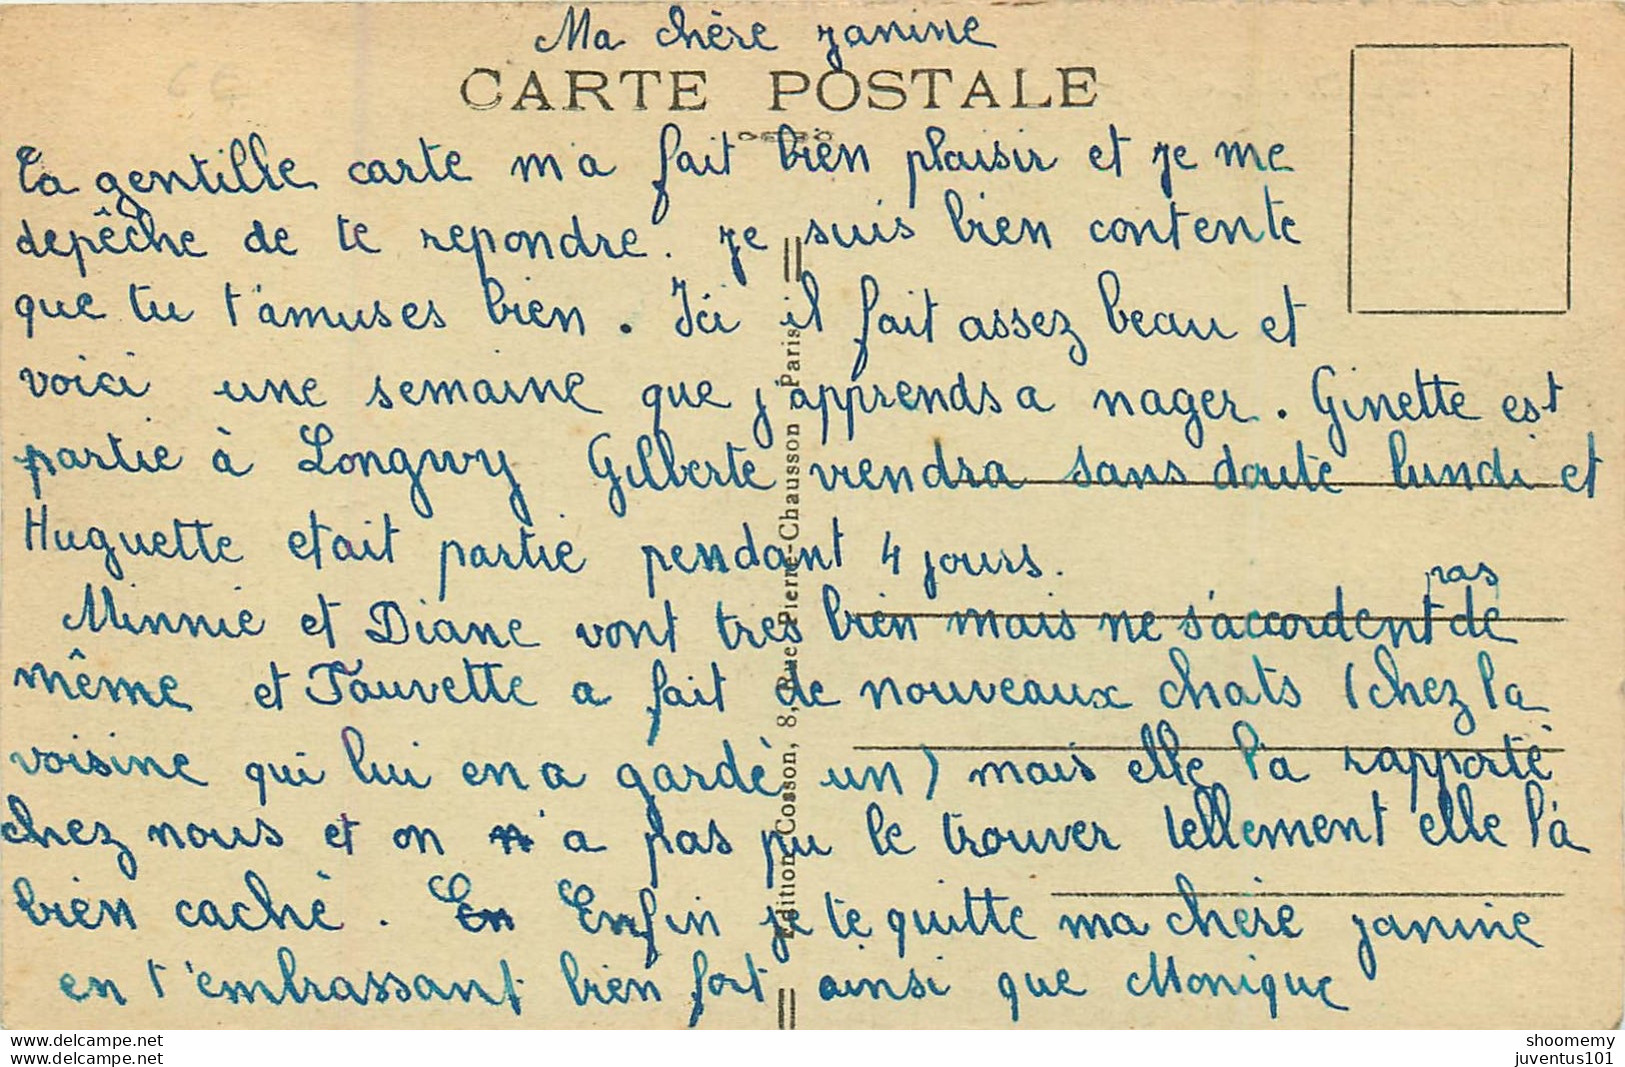 Ma chère Janine
CARTE POSTALE
Ta gentille carte m'a fait bien plaisir et je me
depêche de te repondre. Je suis bien contente
que tu t'amuses bien. Ici il fait assez beau et
voici une semaine que j'apprends a nager. Ginette est
partie à Longwy Gilberte viendra sans doute lundi et
Huguette etait partie pendant 4 jours.
pas
Minnie et Diane vont tres bien mais ne s'accordent de
même et Fauvette a fait de nouveaux chats (chez la
voisine qui lui en a gardè un) mais elle l'a rapporté
chez nous et on n'a pas pu le trouver tellement elle l'a
bien caché. En Enfin je te quitte ma chère Janine
en t'embrassant bien fort ainsi que Monique
Edition Cosson, 8, Rue Pierre-Chausson Paris
www.delcampe.net
www.delcampe.net
shoomemy
juventus101